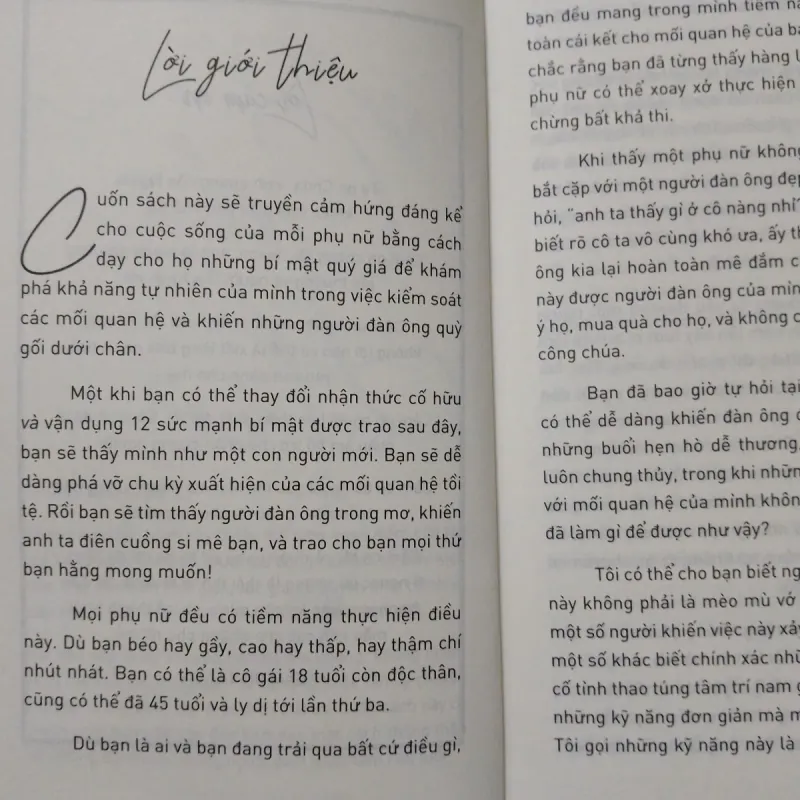 Lời giới thiệu
Cuốn sách này sẽ truyền cảm hứng đáng kể
cho cuộc sống của mỗi phụ nữ bằng cách
dạy cho họ những bí mật quý giá để khám
phá khả năng tự nhiên của mình trong việc kiểm soát
các mối quan hệ và khiến những người đàn ông quỳ
gối dưới chân.
Một khi bạn có thể thay đổi nhận thức cố hữu
và vận dụng 12 sức mạnh bí mật được trao sau đây,
bạn sẽ thấy mình như một con người mới. Bạn sẽ dễ
dàng phá vỡ chu kỳ xuất hiện của các mối quan hệ tồi
tệ. Rồi bạn sẽ tìm thấy người đàn ông trong mơ, khiến
anh ta điên cuồng si mê bạn, và trao cho bạn mọi thứ
bạn hằng mong muốn!
Mọi phụ nữ đều có tiềm năng thực hiện điều
này. Dù bạn béo hay gầy, cao hay thấp, hay thậm chí
nhút nhát. Bạn có thể là cô gái 18 tuổi còn độc thân,
cũng có thể đã 45 tuổi và ly dị tới lần thứ ba.
Dù bạn là ai và bạn đang trải qua bất cứ điều gì,
bạn đều mang trong mình tiềm
toàn cái kết cho mối quan hệ của
chắc rằng bạn đã từng thấy hàng
phụ nữ có thể xoay xở thực hiện
chừng bất khả thi.
Khi thấy một phụ nữ không
bắt cặp với một người đàn ông đẹp
hỏi, "anh ta thấy gì ở cô nàng nhỉ?
biết rõ cô ta vô cùng khó ưa, ấy
ông kia lại hoàn toàn mê đắm
này được người đàn ông của
ý họ, mua quà cho họ, và không
công chúa.
Bạn đã bao giờ tự hỏi tại
có thể dễ dàng khiến đàn ông
những buổi hẹn hò dễ thương,
luôn chung thủy, trong khi
với mối quan hệ của mình
đã làm gì để được như vậy?
Tôi có thể cho bạn biết
này không phải là mèo mù vớ
một số người khiến việc này xảy
một số khác biệt chính xác
cố tình thao túng tâm trí nam
những kỹ năng đơn giản mà
Tôi gọi những kỹ năng này là